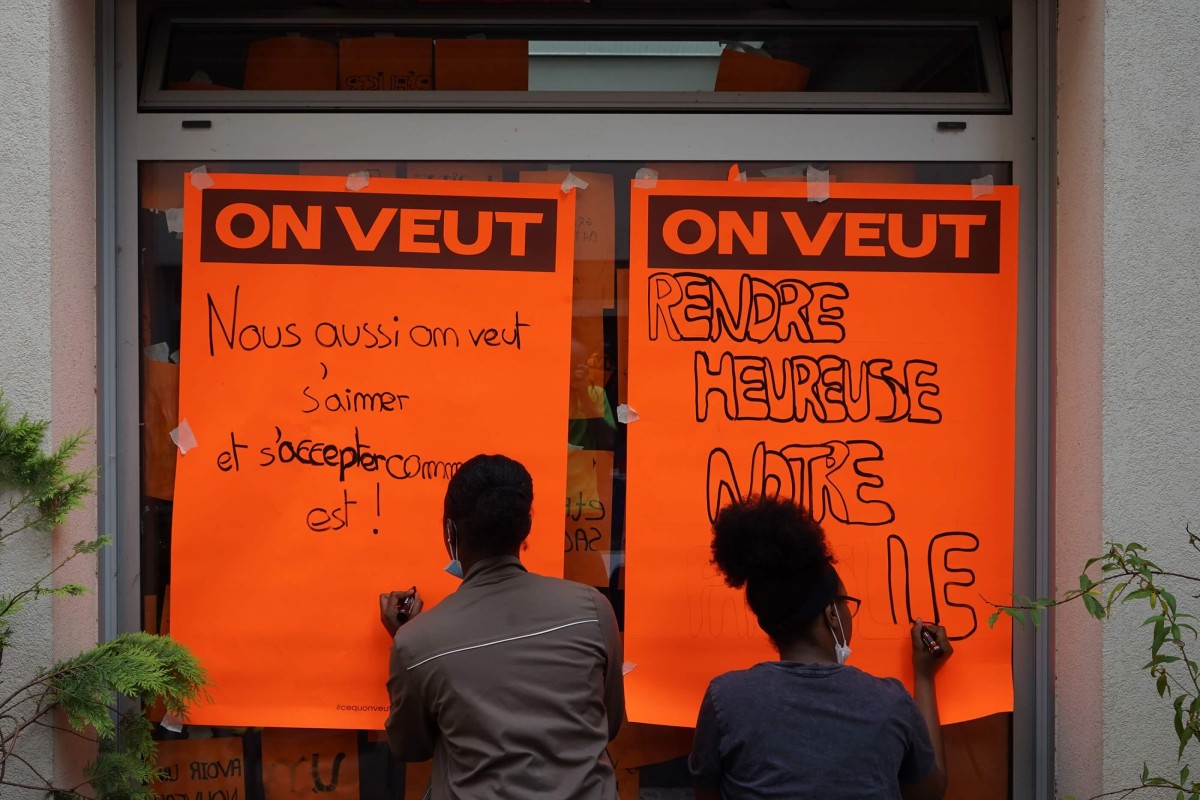 ON VEUT
Nous aussi on veut
s'aimer
et s'accepter comm
est !
#cequonveut
ON VEUT
RENDRE
HEUREUSE
NOTRE
LE
AVOIR UN